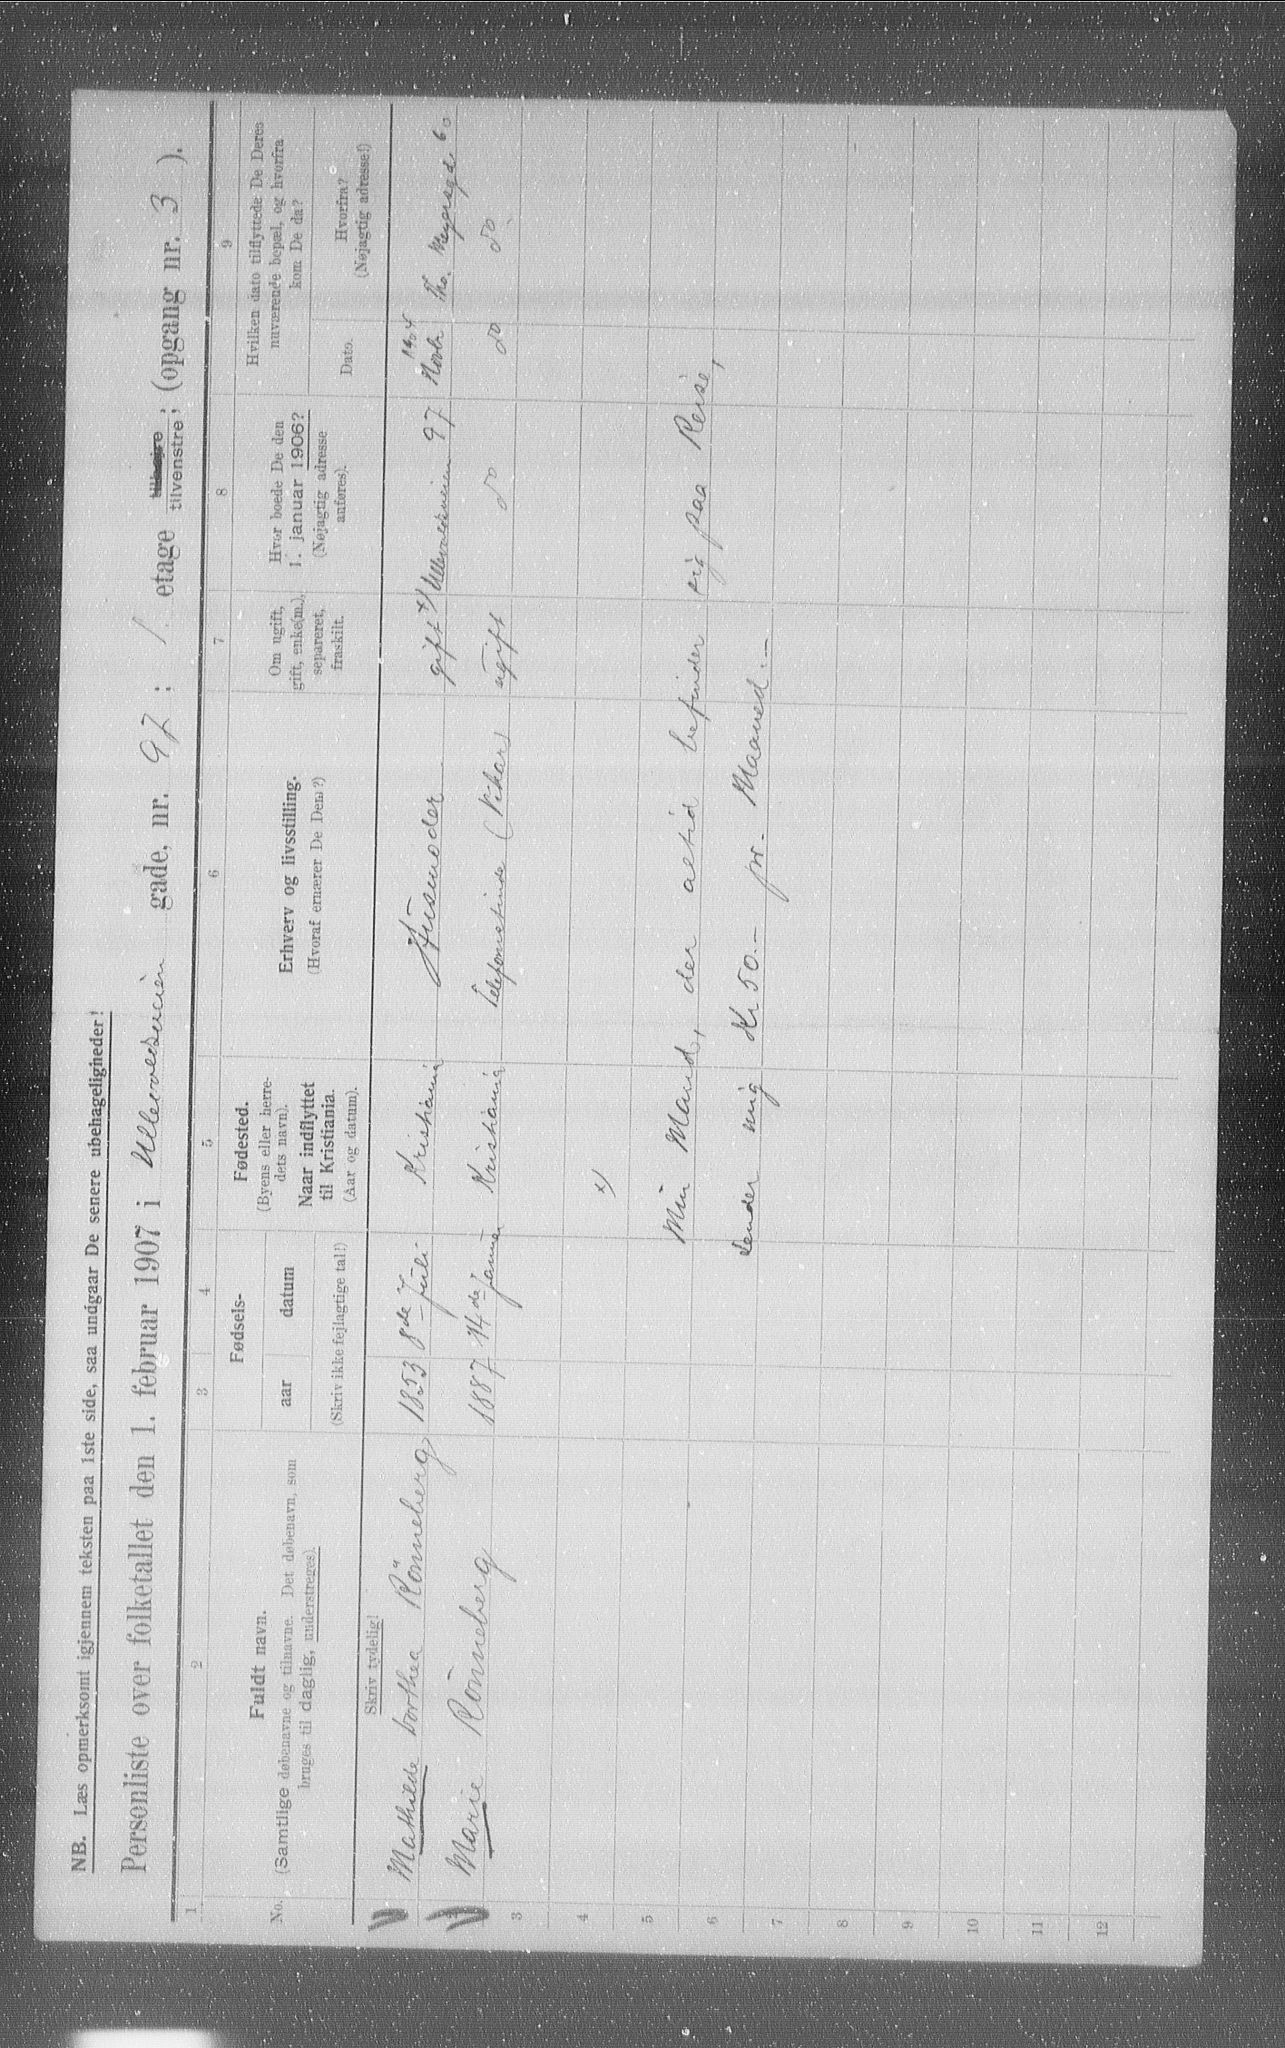 NB. Læs opmerksomt igjennem teksten paa 1ste side, saa undgaar De senere ubehageligheder!
Personliste over folketallet den 1. februar 1907 i Ullevoldsveien gade, nr. 97 ; 1. etage tilvenstre; (opgang nr. 3 ).
1 2 3 4 5 6 7 8 9
No.
Fuldt navn.
(Samtlige døbenavne og tilnavne. Det døbenavn, som
bruges til daglig, understreges).
Fødsels-
aar datum
(Skriv ikke fejlagtige tal!)
Fødested.
(Byens eller herre-
dets navn).
Naar indflyttet
til Kristiania.
(Aar og datum).
Erhverv og livsstilling.
(Hvoraf ernærer De Dem?)
Om ugift,
gift, enke(m.),
separeret,
fraskilt.
Hvor boede De den
1. januar 1906?
(Nøjagtig adresse
anføres).
Hvilken dato tilflyttede De Deres
nuværende bopæl, og hvorfra
kom De da?
Dato.
Hvorfra?
(Nøjagtig adresse!)
Skriv tydelig!
Mathilde Dorthea Rönneberg 1853 8de Juli Kristiania Husmoder gift x) Ullevoldsveien 97 1904 Novbr Th. Meyersgd. 60
2 Marie Rönneberg 1887 14de Januar Kristiania Telefonistinde (Vikar) ugift do do do
3
4 x)
5 Min Mand, der altid befinder sig paa Reise,
6 sender mig Kr 50.- pr. Maaned.-
7
8
9
10
11
12